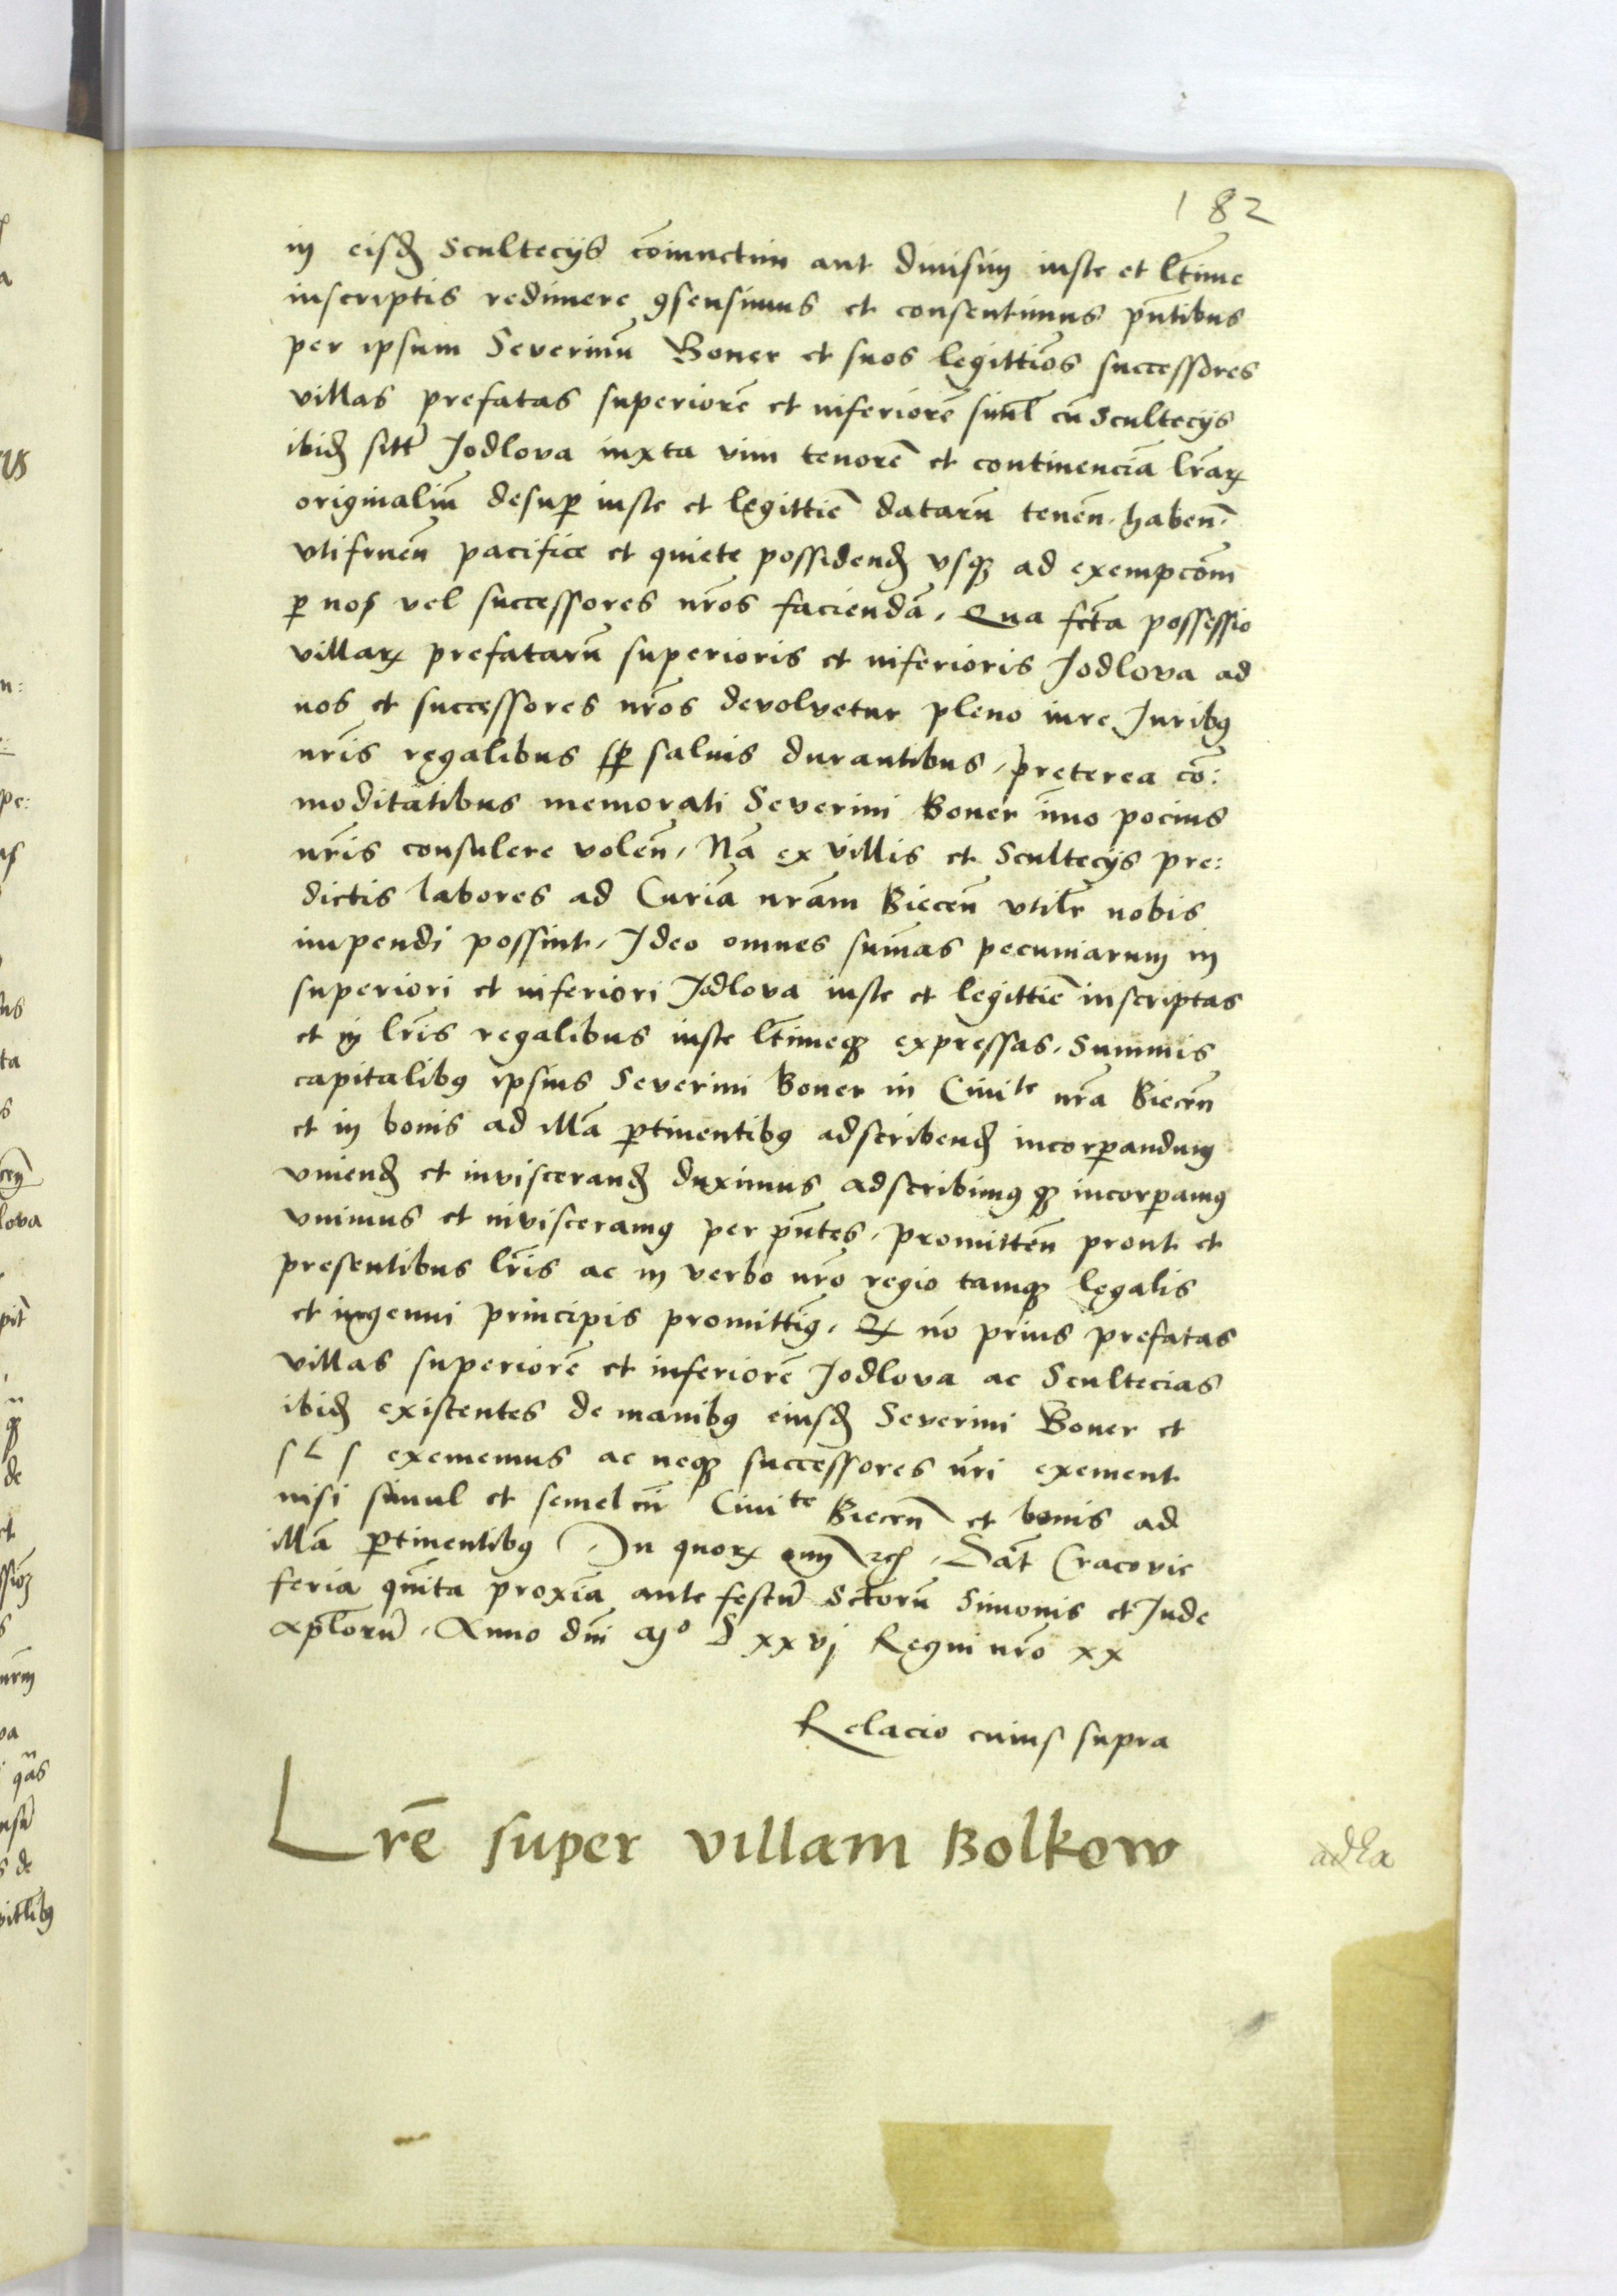 182
in eisđ Scultecijs cōiunctim aut diuisim iuste et ltīme
inscriptis redimere ꝯsensimus et consentimus pn̄tibus
per ipsum Severinū Boner et suos legittiōs successores
villas prefatas superiorē et inferiorē siml̄ cū Scultecijs
ibiđ sitt̄ Jodlova iuxta vim tenorē et continenciā lr̄aꝝ
originaliū desuꝑ iuste et legittiē datarū tenen̄ . haben̄ .
vtifruen̄ pacifice et quiete possidenđ vsqꝫ ad exempcōm
ꝑ nos vel successores nr̄os faciendā , Qua fcta possessio
villaꝝ prefatarū superioris et inferioris Jodlova ad
nos et successores nr̄os devolvetur pleno iure Juribꝰ
nr̄is regalibus sꝑ saluis durantibus , preterea cō:
moditatibus memorati Severini Boner īmo pocius
nr̄is consulere volen̄ , Nā ex villis et Scultecijs pre:
dictis labores ad Curiā nr̄am Biecen̄ vtilr̄ nobis
impendi possint , Ideo omnes sum̄as pecuniarum in
superiori et inferiori Jodlova iuste et legittiē inscriptas
et in lr̄is regalibus iuste ltīmeqꝫ expressas , Summis
capitalibꝰ ipsius Severini Boner in Ciuite nr̄a Biecen̄
et in bonis ad illā ꝑtinentibꝰ adscribenđ incorꝑandum
vnienđ et inviscerandđ duximus adscribimꝰ qꝫ incorꝑamꝰ
vnimus et invisceramꝰ per pn̄tes , promitten̄ prout et
presentibus lr̄is ac in verbo nr̄o regio tamqꝫ legalis
et ingenui principis promittimꝰ , Qꝫ nō prius prefatas
villas superiorē et inferiorē Jodlova ac Scultecias
ibiđ existentes de manibꝰ eiusđ Severini Boner et
s l s exememus ac neqꝫ successores nr̄i exement
nisi simul et semel cū Ciuite Biecen̄ et bonis ad
illā ꝑtinentibꝰ , In quoꝝ , Dat̄ Cracovie
feria quīta proxīa ante festū Sctorū Simonis et Jude
Apl̄orū , Anno dn̄i Mº D xxvj Regni nr̄o xx
Relacio cuius supra
Lrē super villam Bolkow